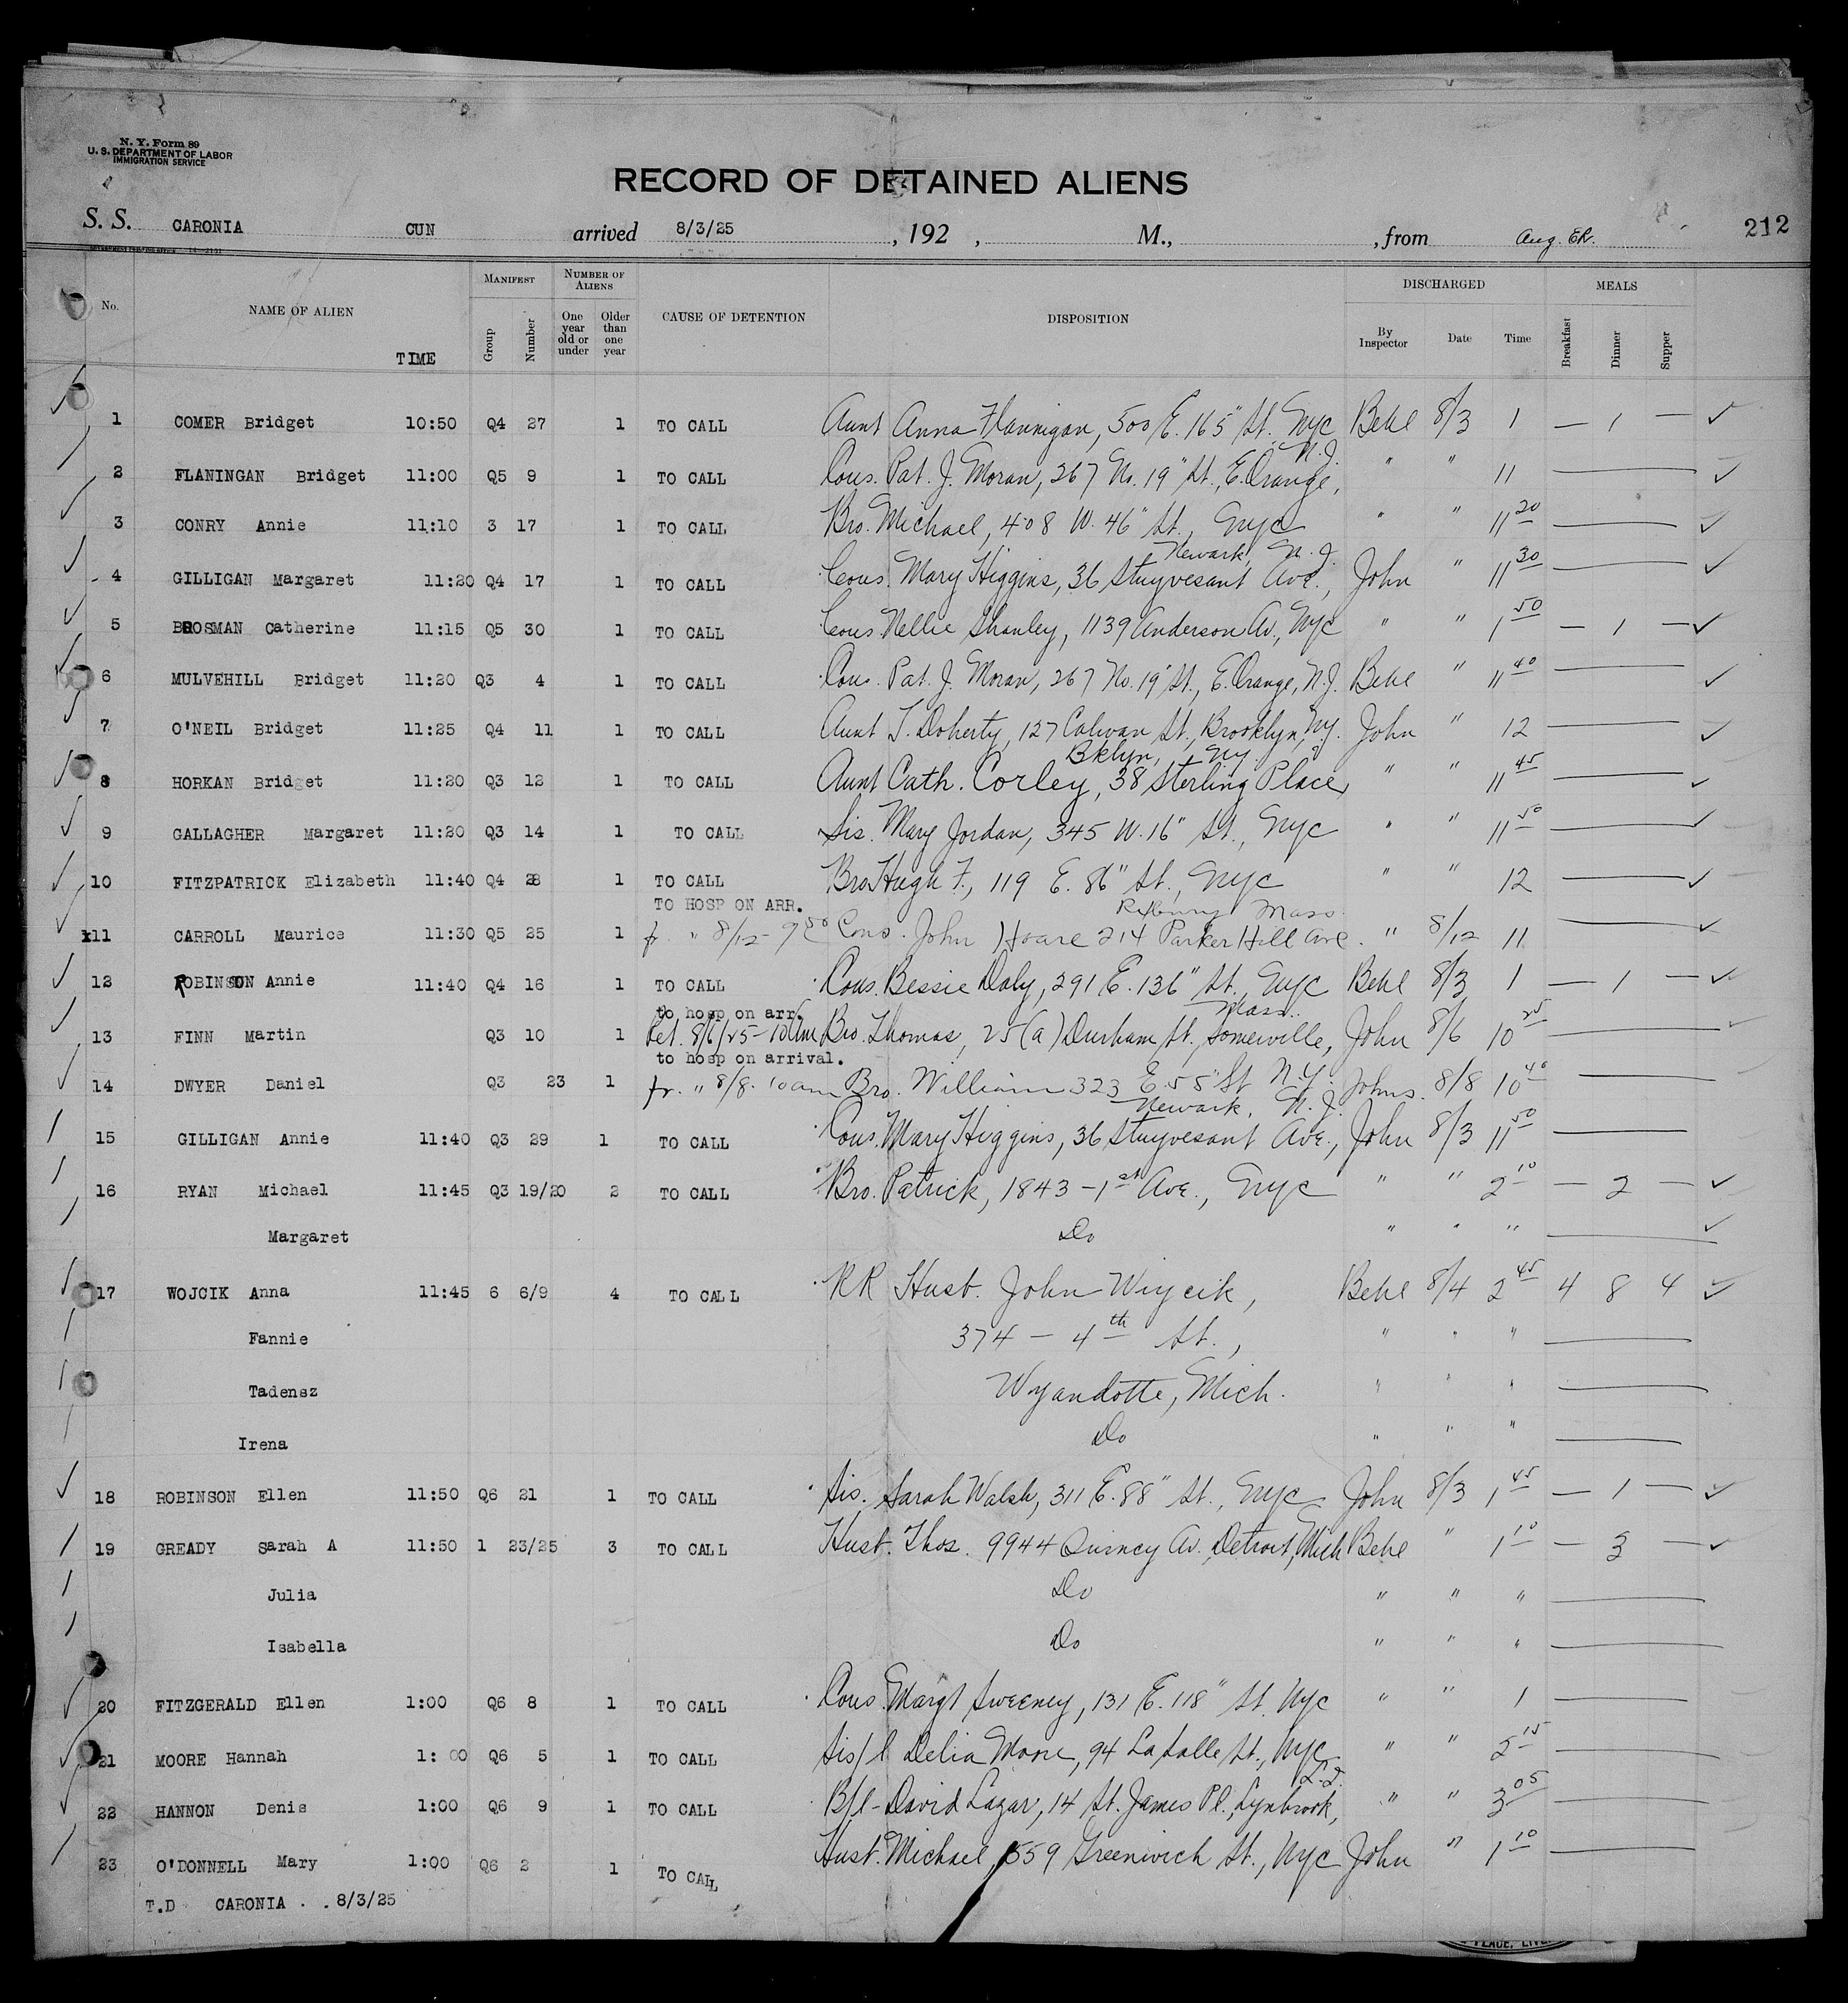 N. Y. Form 89
U. S. DEPARTMENT OF LABOR
IMMIGRATION SERVICE
RECORD OF DETAINED ALIENS
S. S. CARONIA CUN arrived 8/3/25, 192 , M., , from Aug. ER. 212
No. NAME OF ALIEN TIME MANIFEST Group Number NUMBER OF ALIENS One year old or under Older than one year CAUSE OF DETENTION DISPOSITION DISCHARGED By Inspector Date Time MEALS Breakfast Dinner Supper
1 COMER Bridget 10:50 Q4 27 1 TO CALL Aunt Anna Flannigan, 500 E. 165" St. Nyc Behl 8/3 1 — 1 — ✓
N.J.
2 FLANINGAN Bridget 11:00 Q5 9 1 TO CALL Cous. Pat. J. Moran, 267 No. 19" St., E. Orange, " " 11 ✓
3 CONRY Annie 11:10 3 17 1 TO CALL Bro. Michael, 408 W. 46" St., Nyc " " 11 20 ✓
Newark, N. J.
4 GILLIGAN Margaret 11:20 Q4 17 1 TO CALL Cous. Mary Higgins, 36 Stuyvesant Ave., John " 11 30 ✓
5 BROSMAN Catherine 11:15 Q5 30 1 TO CALL Cous. Nellie Shanley, 1139 Anderson Av., Nyc " " 1 50 — 1 — ✓
6 MULVEHILL Bridget 11:20 Q3 4 1 TO CALL Cous. Pat. J. Moran, 267 No. 19" St., E. Orange, N.J. Behl " 11 40 ✓
7 O'NEIL Bridget 11:25 Q4 11 1 TO CALL Aunt T. Doherty, 127 St., Brooklyn, Ny. John " 12 ✓
Bklyn, Ny.
8 HORKAN Bridget 11:20 Q3 12 1 TO CALL Aunt Cath. Corley, 38 Sterling Place, " " 11 45 ✓
9 GALLAGHER Margaret 11:20 Q3 14 1 TO CALL Sis. Mary Jordan, 345 W. 16" St., Nyc " " 11 50 ✓
10 FITZPATRICK Elizabeth 11:40 Q4 28 1 TO CALL Bro Hugh F., 119 E. 86" St., Nyc " " 12 ✓
TO HOSP ON ARR. Roxbury Mass.
x11 CARROLL Maurice 11:30 Q5 25 1 fr. " 8/12 - 9 50 Cous. John Hoare 214 Parker Hill Ave. " 8/12 11 ✓
12 ROBINSON Annie 11:40 Q4 16 1 TO CALL Cous. Bessie Daly, 291 E. 136" St., Nyc Behl 8/3 1 — 1 — ✓
to hosp on arr. Mass.
13 FINN Martin Q3 10 1 Ret. 8/6/25 - 10 am Bro. Thomas, 25 (a) Durham St., Somerville, John 8/6 10 25 ✓
to hosp on arrival.
14 DWYER Daniel Q3 23 1 fr. " 8/8. 10 am Bro. William 323 E. 55" St N.Y. Johns. 8/8 10 40
Newark, N. J.
15 GILLIGAN Annie 11:40 Q3 29 1 TO CALL Cous. Mary Higgins, 36 Stuyvesant Ave., John 8/3 11 50
16 RYAN Michael 11:45 Q3 19/20 2 TO CALL Bro. Patrick, 1843 - 1st Ave., Nyc " " 2 10 — 2 — ✓
Margaret Do " " " ✓
17 WOJCIK Anna 11:45 6 6/9 4 TO CALL RR Husb. John Wiycik, Behl 8/4 2 45 4 8 4 ✓
Fannie 374 - 4th St., " " "
Tadensz Wyandotte, Mich. " " "
Irena Do " " "
18 ROBINSON Ellen 11:50 Q6 21 1 TO CALL Sis. Sarah Walsh, 311 E. 88" St., Nyc John 8/3 1 45 — 1 — ✓
19 GREADY Sarah A 11:50 1 23/25 3 TO CALL Husb. Thos. 9944 Quincy Av. Detroit, Mich Behl " 1 10 — 3 — ✓
Julia Do " " "
Isabella Do " " "
20 FITZGERALD Ellen 1:00 Q6 8 1 TO CALL Cous. Margt Sweeney, 131 E. 118" St. Nyc " " 1
21 MOORE Hannah 1:00 Q6 5 1 TO CALL Sis/l Delia Moore, 94 LaSalle St., Nyc " " 2 15
L.I.
22 HANNON Denis 1:00 Q6 9 1 TO CALL B/l - David Lazar, 14 St. James Pl., Lynbrook, " " 3 05
23 O'DONNELL Mary 1:00 Q6 2 1 TO CALL Husb. Michael, 559 Greenwich St., Nyc John " 1 10
T.D CARONIA . . 8/3/25
PLACE, LIVE